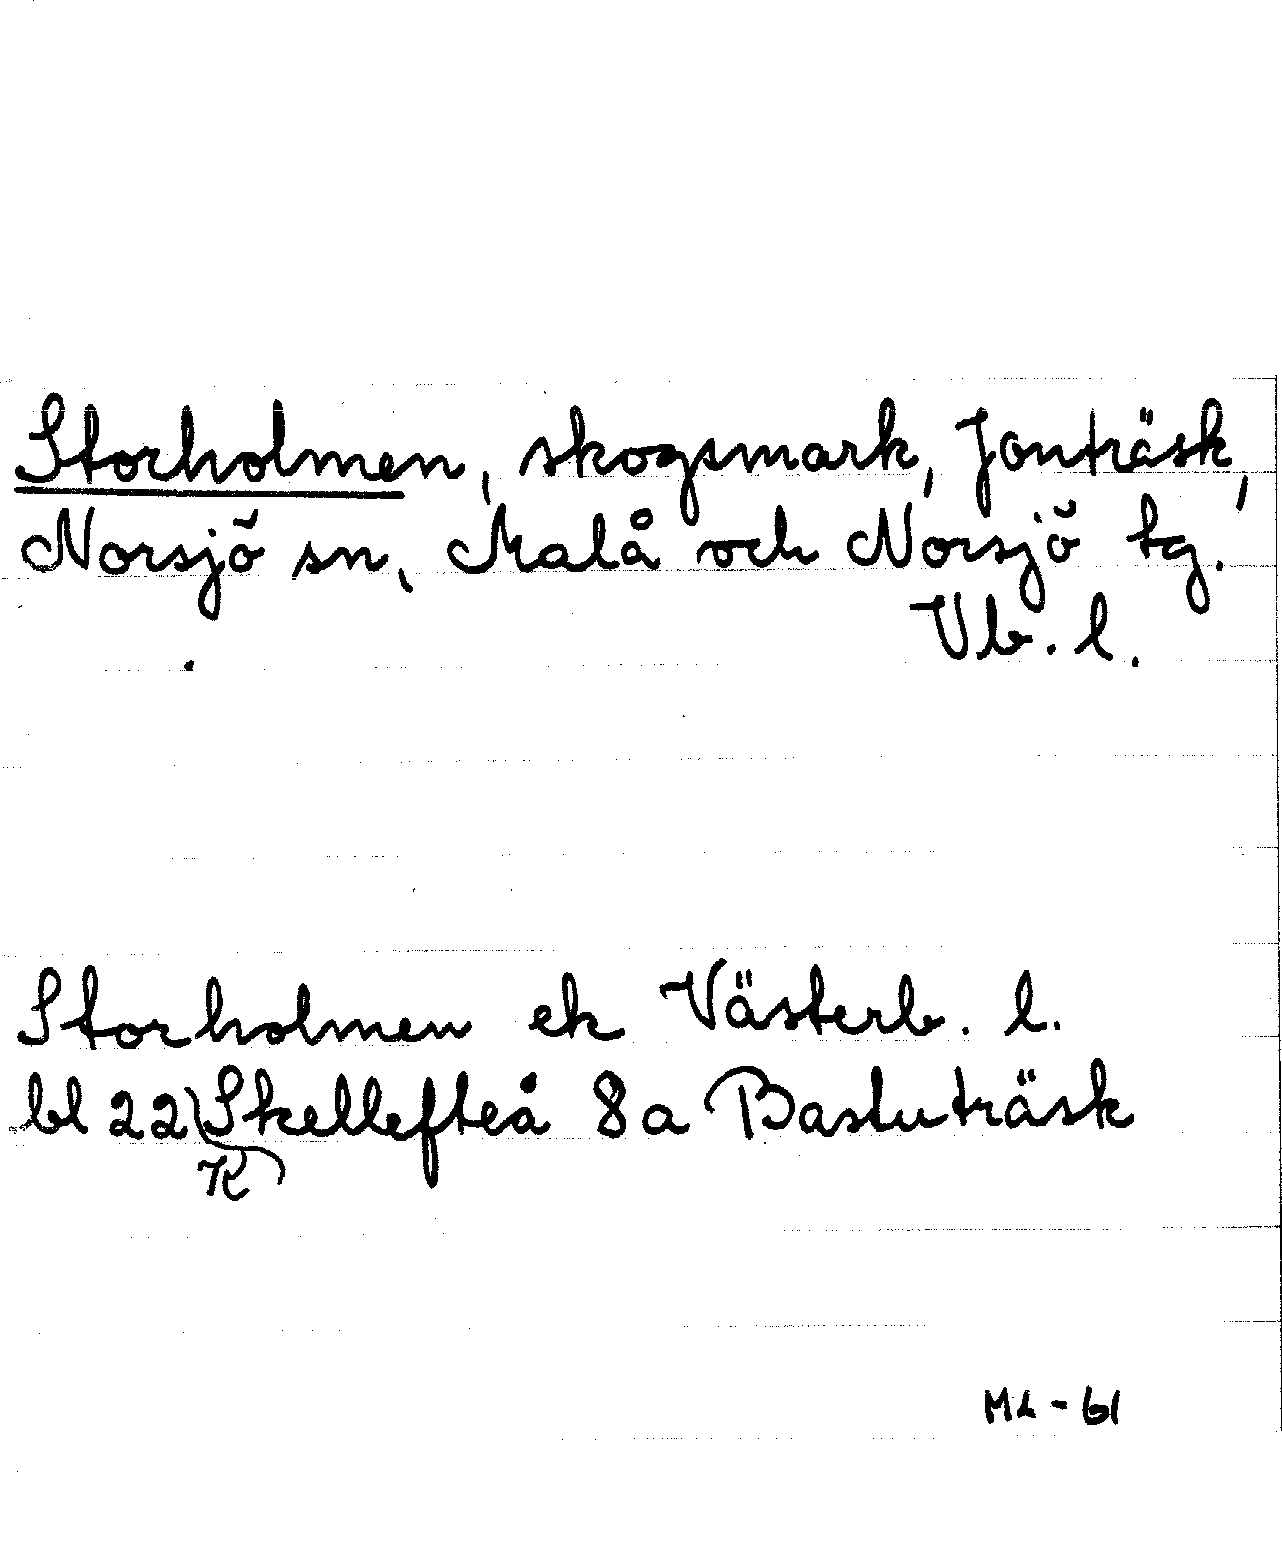 Storholmen, skogsmark, Jonträsk,
Norsjö sn, Malå och Norsjö tg.
Vb. l.
Storholmen ek Västerb. l.
bl 22 Skellefteå 8a Bastuträsk
K
ML - 61